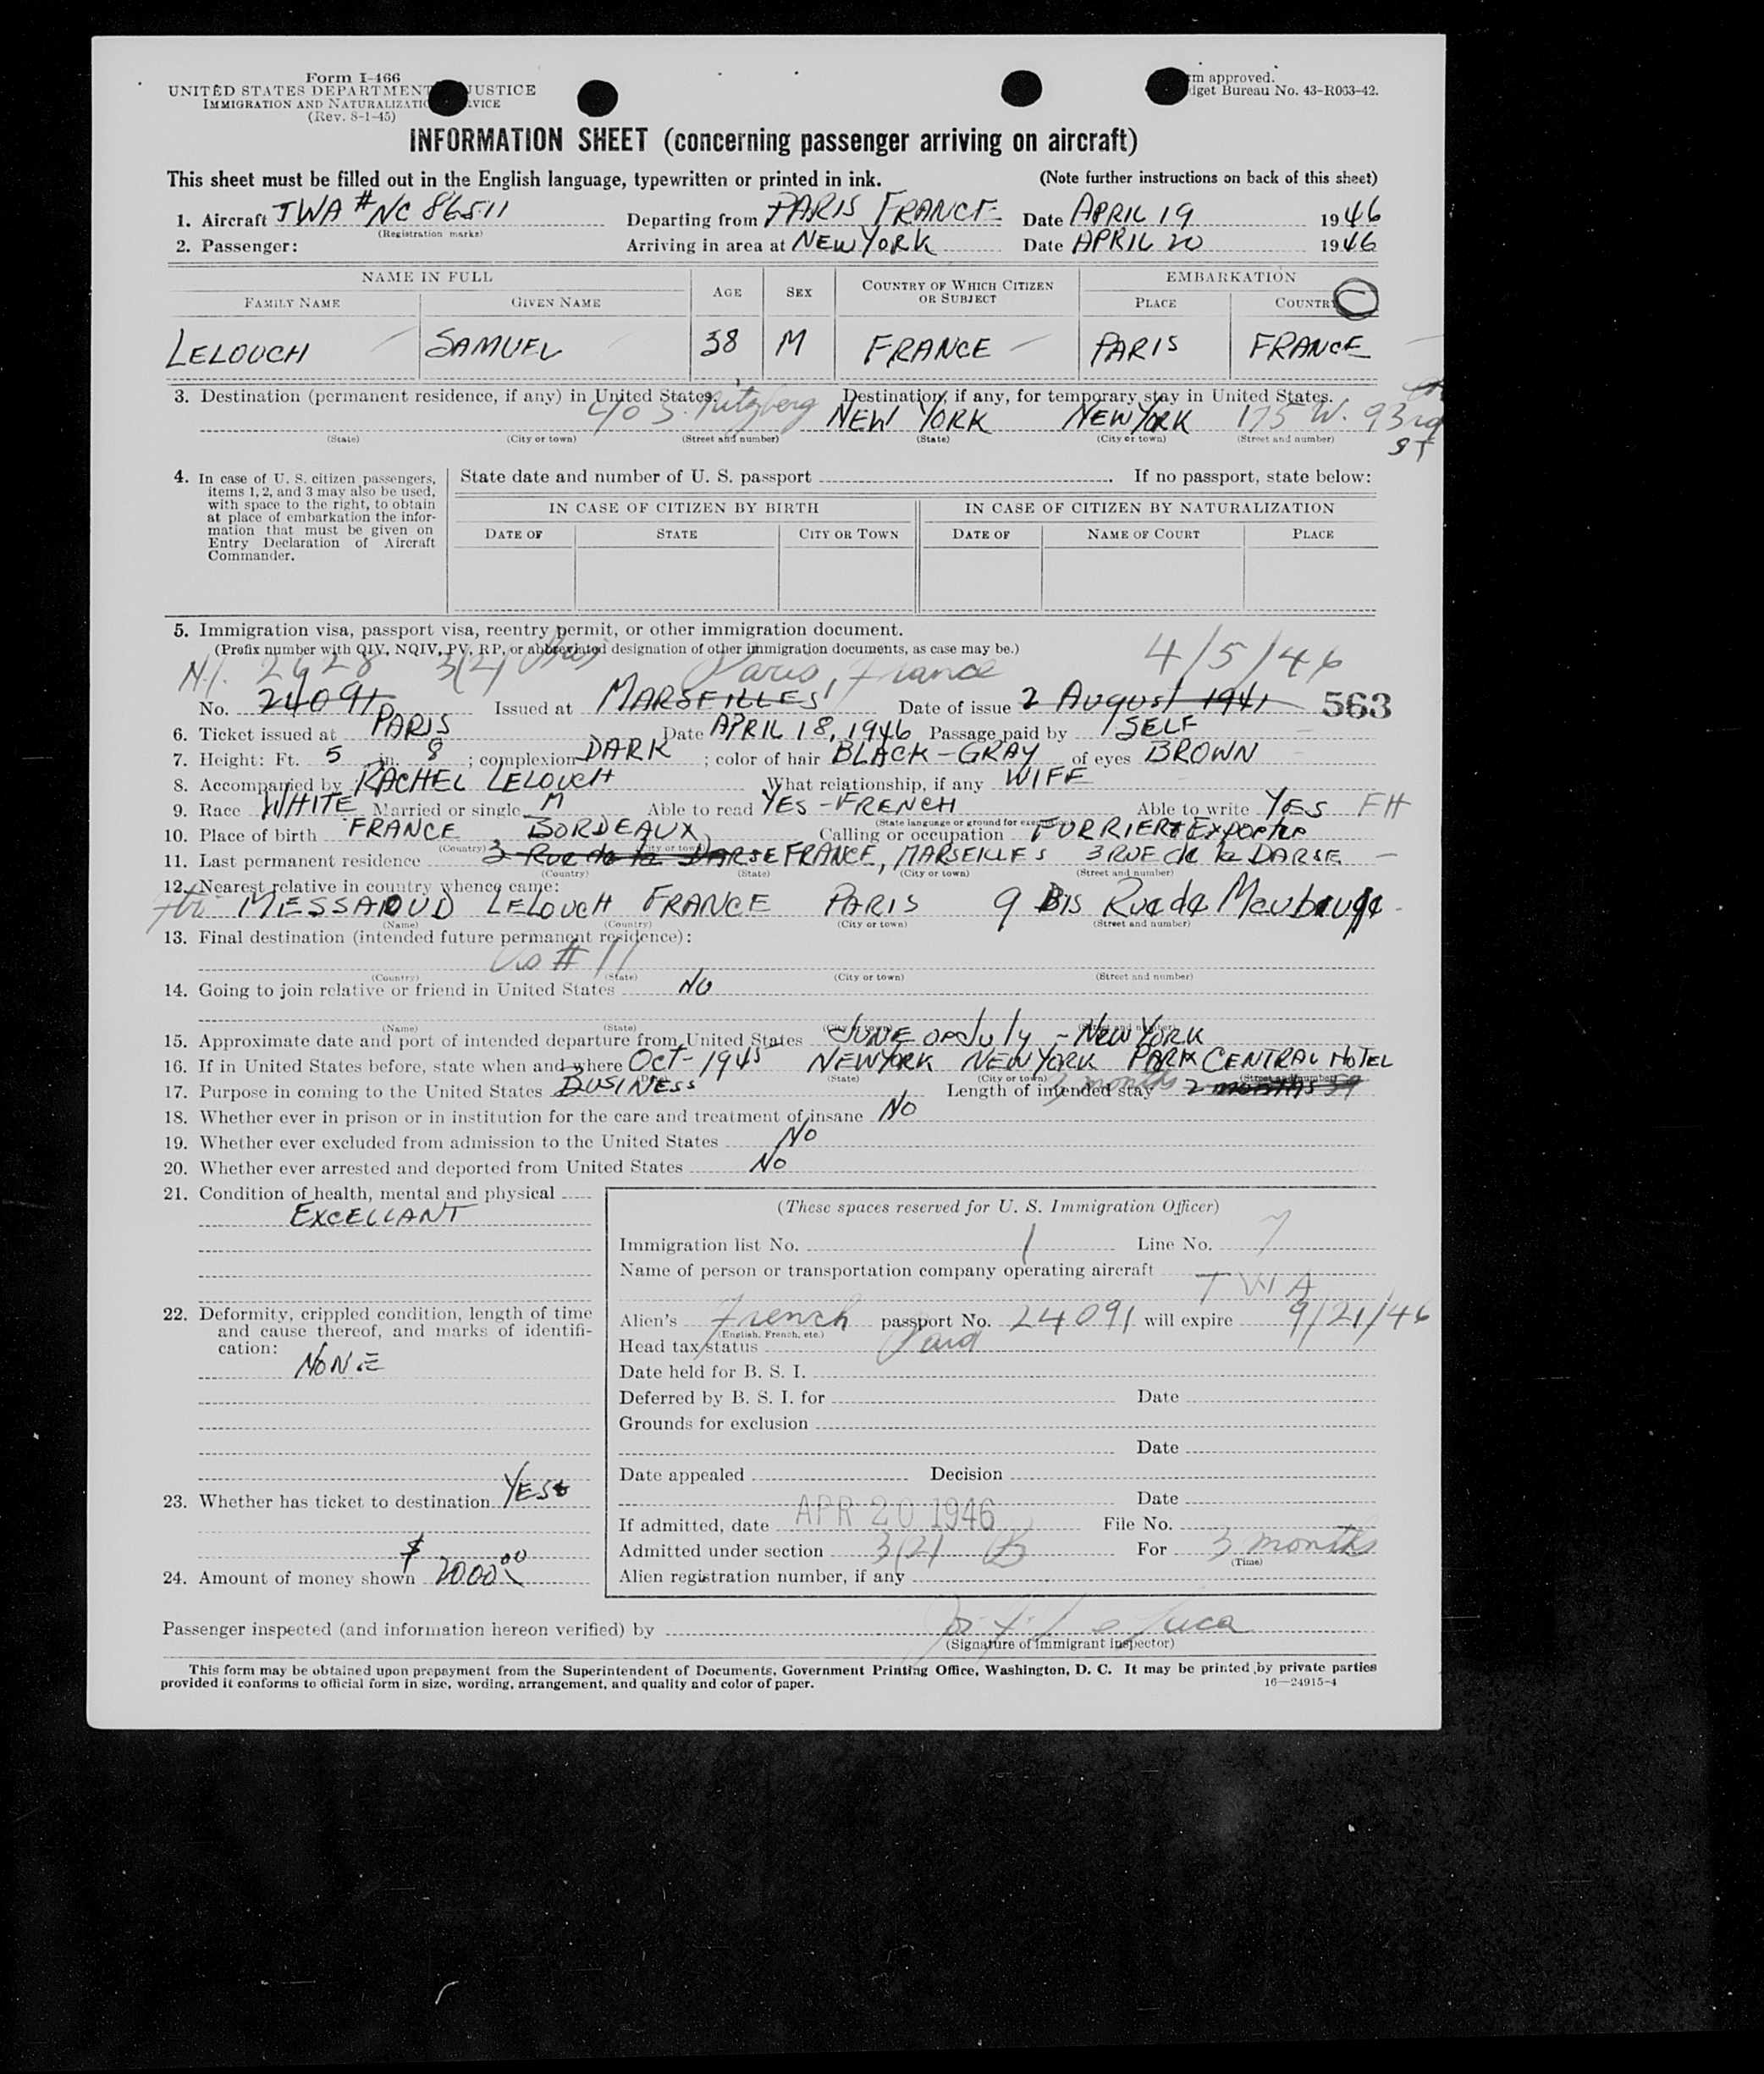 Form I-466
UNITED STATES DEPARTMENT JUSTICE
IMMIGRATION AND NATURALIZATIO VICE
(Rev. 8-1-45)
rm approved.
dget Bureau No. 43-R063-42.
INFORMATION SHEET (concerning passenger arriving on aircraft)
This sheet must be filled out in the English language, typewritten or printed in ink. (Note further instructions on back of this sheet)
1. Aircraft TWA # NC 86511 Departing from PARIS FRANCE Date APRIL 19 1946
(Registration marks)
2. Passenger: Arriving in area at NEW YORK Date APRIL 20 1946
NAME IN FULL AGE SEX COUNTRY OF WHICH CITIZEN OR SUBJECT EMBARKATION
FAMILY NAME GIVEN NAME PLACE COUNTRY
LELOUCH SAMUEL 38 M FRANCE PARIS FRANCE
3. Destination (permanent residence, if any) in United States. Destination, if any, for temporary stay in United States.
c/o S. NEW YORK NEW YORK 175 W. 93rd
(State) (City or town) (Street and number) (State) (City or town) (Street and number)
ST
4. In case of U. S. citizen passengers, items 1, 2, and 3 may also be used, with space to the right, to obtain at place of embarkation the information that must be given on Entry Declaration of Aircraft Commander.
State date and number of U. S. passport . If no passport, state below:
IN CASE OF CITIZEN BY BIRTH IN CASE OF CITIZEN BY NATURALIZATION
DATE OF STATE CITY OR TOWN DATE OF NAME OF COURT PLACE
5. Immigration visa, passport visa, reentry permit, or other immigration document.
(Prefix number with QIV, NQIV, PV, RP, or abbreviated designation of other immigration documents, as case may be.)
2628 3(2) Paris, France 4/5/46
No. 24091 Issued at MARSEILLES Date of issue 2 August 1941 563
6. Ticket issued at PARIS Date APRIL 18, 1946 Passage paid by SELF
7. Height: Ft. 5 in. 8 ; complexion DARK ; color of hair BLACK-GRAY of eyes BROWN
8. Accompanied by RACHEL LELOUCH What relationship, if any WIFE
9. Race WHITE Married or single M Able to read YES - FRENCH Able to write YES FH
(State language or ground for exemption)
10. Place of birth FRANCE BORDEAUX Calling or occupation FURRIER & Exporter
(Country) (City or town)
11. Last permanent residence 3 Rue de la DARSE FRANCE, MARSEILLES 3 RUE de la DARSE
(Country) (State) (City or town) (Street and number)
12. Nearest relative in country whence came:
MESSAOUD LELOUCH FRANCE PARIS 9 Bis Rue de Meubeuge
(Name) (Country) (City or town) (Street and number)
13. Final destination (intended future permanent residence):
As # 11
(Country) (State) (City or town) (Street and number)
14. Going to join relative or friend in United States No
(Name) (State) (City or town) (Street and number)
15. Approximate date and port of intended departure from United States JUNE or July - New York
16. If in United States before, state when and where Oct - 1945 NEWYORK NEW YORK PARK CENTRAL HOTEL
(State) (City or town) (Street and number)
17. Purpose in coming to the United States BUSINESS Length of intended stay 3 months 2 months
18. Whether ever in prison or in institution for the care and treatment of insane No
19. Whether ever excluded from admission to the United States No
20. Whether ever arrested and deported from United States No
21. Condition of health, mental and physical
EXCELLANT
22. Deformity, crippled condition, length of time and cause thereof, and marks of identification:
NONE
23. Whether has ticket to destination YES
24. Amount of money shown $ 2000.00
(These spaces reserved for U. S. Immigration Officer)
Immigration list No. 1 Line No. 7
Name of person or transportation company operating aircraft
TWA
Alien's French passport No. 24091 will expire 9/21/46
(English, French, etc.)
Head tax status Paid
Date held for B. S. I.
Deferred by B. S. I. for Date
Grounds for exclusion
Date
Date appealed Decision
Date
If admitted, date APR 20 1946 File No.
Admitted under section 3(2) B For 3 months
(Time)
Alien registration number, if any
Passenger inspected (and information hereon verified) by
(Signature of Immigrant Inspector)
This form may be obtained upon prepayment from the Superintendent of Documents, Government Printing Office, Washington, D. C. It may be printed by private parties
provided it conforms to official form in size, wording, arrangement, and quality and color of paper. 16—24915-4